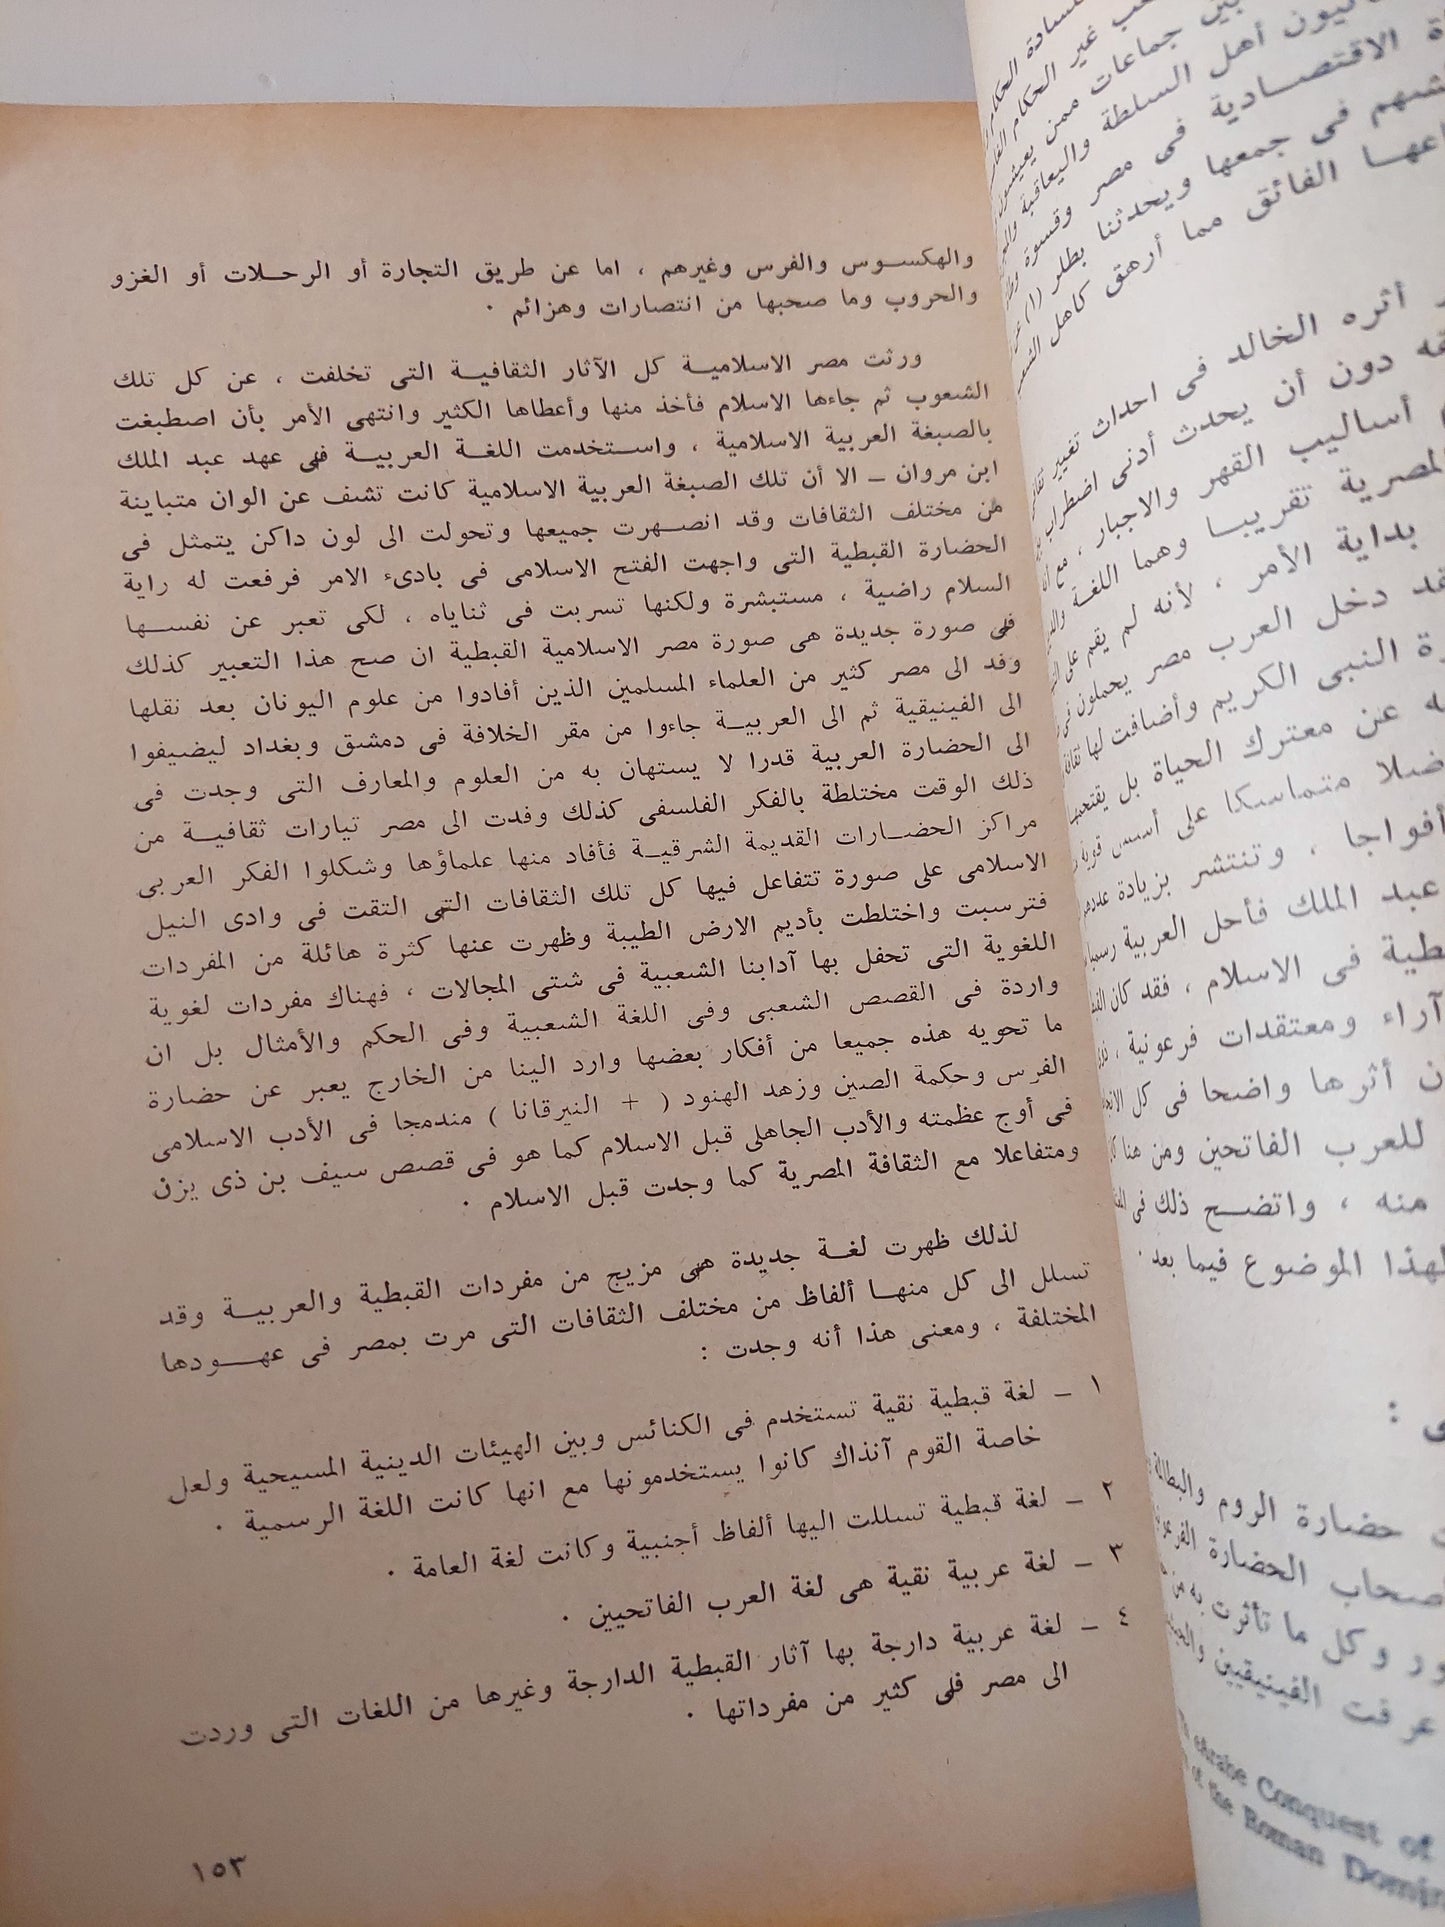 والهكسوس والفرس وغيرهم ، اما عن طريق التجارة أو الرحلات أو الغزو
والحروب وما صحبها من انتصارات وهزائم .
ورثت مصر الاسلامية كل الآثار الثقافية التى تخلفت ، عن كل تلك
الشعوب ثم جاءها الاسلام فأخذ منها وأعطاها الكثير وانتهى الأمر بأن اصطبغت
بالصبغة العربية الاسلامية ، واستخدمت اللغة العربية فى عهد عبد الملك
ابن مروان – الا أن تلك الصبغة العربية الاسلامية كانت تشف عن الوان متباينة
من مختلف الثقافات وقد انصهرت جميعها وتحولت الى لون داكن يتمثل فى
الحضارة القبطية التى واجهت الفتح الاسلامى فى بادىء الامر فرفعت له راية
السلام راضية ، مستبشرة ولكنها تسربت فى ثناياه ، لكى تعبر عن نفسها
فى صورة جديدة هى صورة مصر الاسلامية القبطية ان صح هذا التعبير كذلك
وفد الى مصر كثير من العلماء المسلمين الذين أفادوا من علوم اليونان بعد نقلها
الى الفينيقية ثم الى العربية جاءوا من مقر الخلافة فى دمشق وبغداد ليضيفوا
الى الحضارة العربية قدرا لا يستهان به من العلوم والمعارف التى وجدت فى
ذلك الوقت مختلطة بالفكر الفلسفى كذلك وفدت الى مصر تيارات ثقافية من
مراكز الحضارات القديمة الشرقية فأفاد منها علماؤها وشكلوا الفكر العربى
الاسلامى على صورة تتفاعل فيها كل تلك الثقافات التى التقت فى وادى النيل
فترسبت واختلطت بأديم الارض الطيبة وظهرت عنها كثرة هائلة من المفردات
اللغوية التى تحفل بها آدابنا الشعبية فى شتى المجالات ، فهناك مفردات لغوية
واردة فى القصص الشعبى وفى اللغة الشعبية وفى الحكم والأمثال بل ان
ما تحويه هذه جميعا من أفكار بعضها وارد الينا من الخارج يعبر عن حضارة
الفرس وحكمة الصين وزهد الهنود ( + النيرقانا ) مندمجا فى الأدب الاسلامى
فى أوج عظمته والأدب الجاهلى قبل الاسلام كما هو فى قصص سيف بن ذى يزن
ومتفاعلا مع الثقافة المصرية كما وجدت قبل الاسلام .
لذلك ظهرت لغة جديدة هى مزيج من مفردات القبطية والعربية وقد
تسلل الى كل منها ألفاظ من مختلف الثقافات التى مرت بمصر فى عهودها
المختلفة ، ومعنى هذا أنه وجدت :
١ – لغة قبطية نقية تستخدم فى الكنائس وبين الهيئات الدينية المسيحية ولعل
خاصة القوم آنذاك كانوا يستخدمونها مع انها كانت اللغة الرسمية .
٢ – لغة قبطية تسللت اليها ألفاظ أجنبية وكانت لغة العامة .
٣ – لغة عربية نقية هى لغة العرب الفاتحيين .
٤ – لغة عربية دارجة بها آثار القبطية الدارجة وغيرها من اللغات التى وردت
الى مصر فى كثير من مفرداتها .
١٥٣
غير الحكام
بين جماعات ممن يعيشون
أهل السلطة واليعاقبة
الاقتصادية فى مصر وقسوة
فى جمعها ويحدثنا بطلر (١)
الفائق مما أرهق كاهل
أثره الخالد فى احداث تغيير
دون أن يحدث أدنى اضطراب
أساليب القهر والاجبار ، مع
المصرية تقريبا وهما اللغة
بداية الأمر ، لأنه لم يقم على
دخل العرب مصر يحملون
النبى الكريم وأضافت لها
عن معترك الحياة بل
متماسكا على أسس قوية
أفواجا ، وتنتشر بزيادة عددهم
عبد الملك فأحل العربية
فى الاسلام ، فقد كان
آراء ومعتقدات فرعونية ،
أثرها واضحا فى كل
للعرب الفاتحين ومن هنا
منه ، واتضح ذلك فى
لهذا الموضوع فيما بعد .
حضارة الروم
الحضارة
وكل ما تأثرت به من
عرفت الفينيقيين
Conquest of
of the Roman